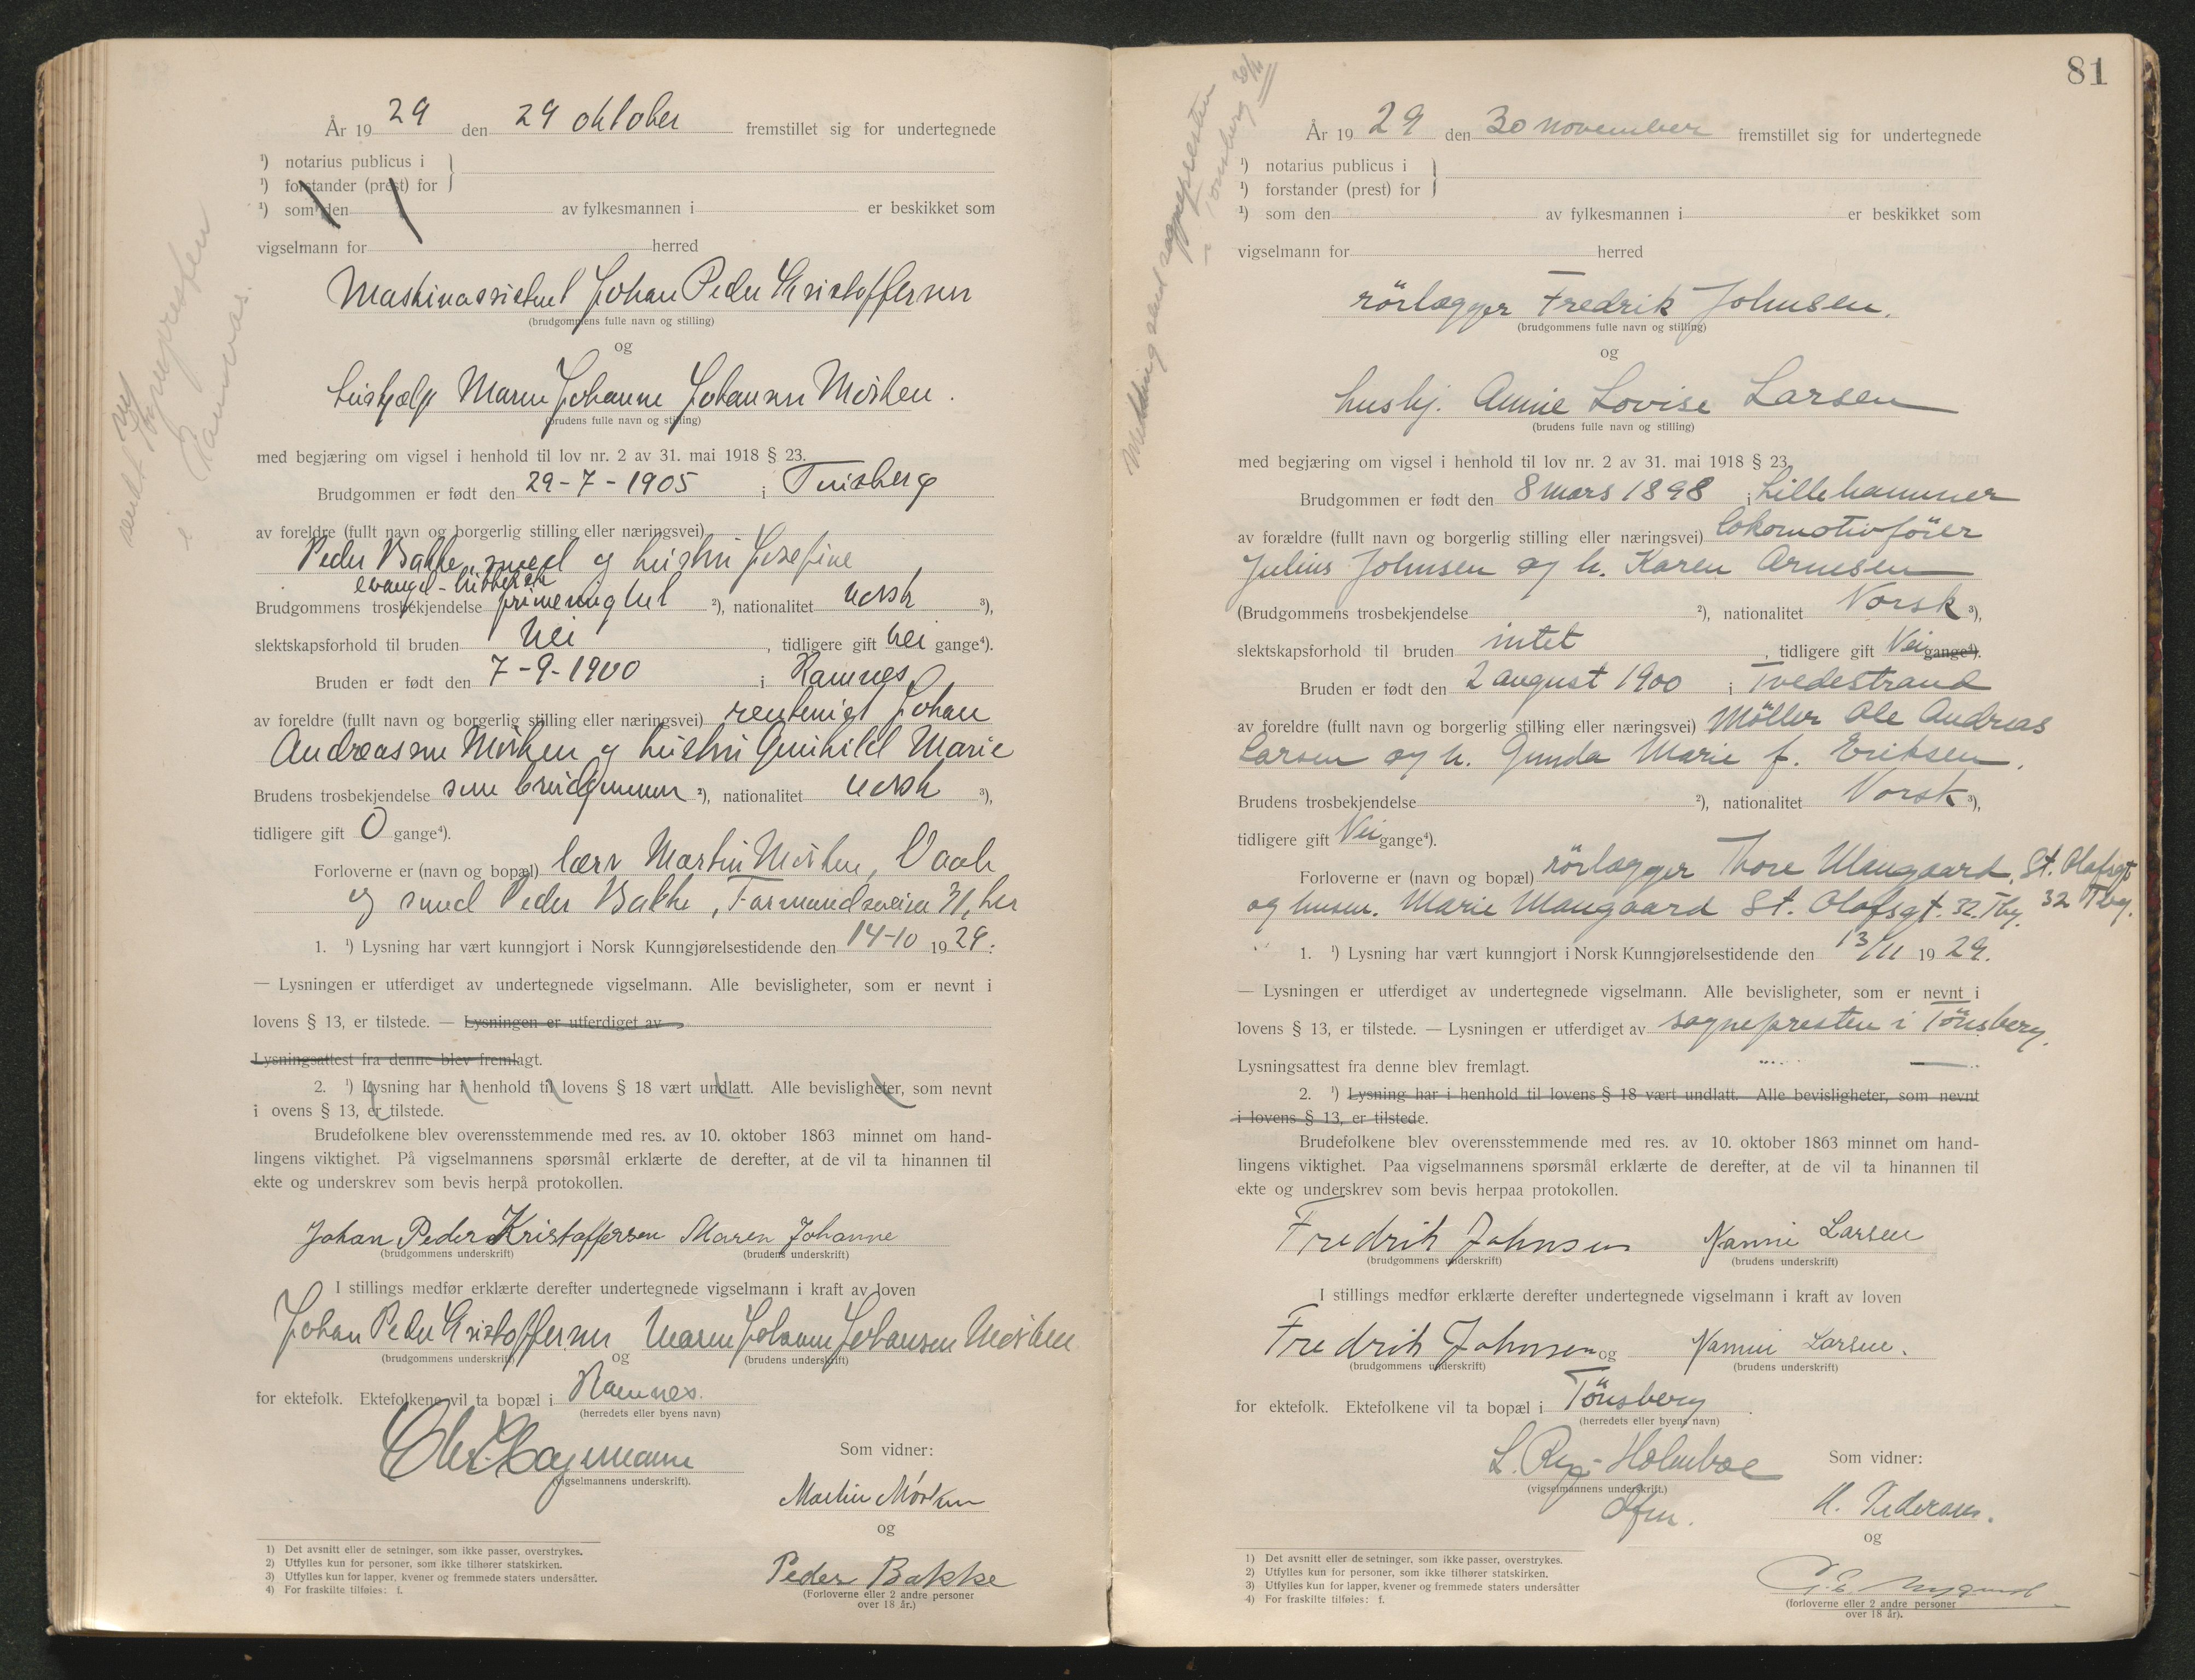 År 19 29 den 29 oktober fremstillet sig for undertegnede
¹) notarius publicus i
¹) forstander (prest) for
¹) som den av fylkesmannen i er beskikket som
vigselmann for herred
Maskinassistent Johan Peder Kristoffersen
(brudgommens fulle navn og stilling)
og
hushjælp Maren Johanne Johansen Mørken.
(brudens fulle navn og stilling)
med begjæring om vigsel i henhold til lov nr. 2 av 31. mai 1918 § 23.
Brudgommen er født den 29-7-1905 i Tønsberg
av foreldre (fullt navn og borgerlig stilling eller næringsvei)
Peder Bakke, smed og hustru Josefine
evangel-luthersk
Brudgommens trosbekjendelse frimenighet ²), nationalitet norsk ³),
slektskapsforhold til bruden Nei, tidligere gift nei gange⁴).
Bruden er født den 7-9-1900 i Ramnes
av foreldre (fullt navn og borgerlig stilling eller næringsvei) Johan
Andreassen Mørken og hustru Gunhild Marie
Brudens trosbekjendelse som brudgommen ²), nationalitet norsk ³),
tidligere gift 0 gange⁴).
Forloverne er (navn og bopæl) Martin Mørken, Vaale
og smed Peder Bakke, Farmandsveien 31, her
1. ¹) Lysning har vært kunngjort i Norsk Kunngjørelsestidende den 14-10 1929.
— Lysningen er utferdiget av undertegnede vigselmann. Alle bevisligheter, som er nevnt i
lovens § 13, er tilstede. — Lysningen er utferdiget av
Lysningsattest fra denne blev fremlagt.
2. ¹) Lysning har i henhold til lovens § 18 vært undlatt. Alle bevisligheter, som nevnt
i ovens § 13, er tilstede.
Brudefolkene blev overensstemmende med res. av 10. oktober 1863 minnet om hand-
lingens viktighet. På vigselmannens spørsmål erklærte de derefter, at de vil ta hinannen til
ekte og underskrev som bevis herpå protokollen.
Johan Peder Kristoffersen Maren Johanne
(brudgommens underskrift) (brudens underskrift)
I stillings medfør erklærte derefter undertegnede vigselmann i kraft av loven
Johan Peder Kristoffersen og Maren Johanne Johansen Mørken
(brudgommens underskrift) (brudens underskrift)
for ektefolk. Ektefolkene vil ta bopæl i Ramnes.
(herredets eller byens navn)
(vigselmannens underskrift).
Som vidner:
Martin Mørken
og
Peder Bakke
(Forloverne eller 2 andre personer
over 18 år.)
1) Det avsnitt eller de setninger, som ikke passer, overstrykes.
2) Utfylles kun for personer, som ikke tilhører statskirken.
3) Utfylles kun for lapper, kvener og fremmede staters undersåtter.
4) For fraskilte tilføies: f.
sendt sognepresten
i Ramnes.
81
Melding sendt sognepresten
i Tønsberg 30/11
År 19 29 den 30 november fremstillet sig for undertegnede
¹) notarius publicus i
¹) forstander (prest) for
¹) som den av fylkesmannen i er beskikket som
vigselmann for herred
rörlægger Fredrik Johnsen.
(brudgommens fulle navn og stilling)
og
hushj. Annie Lovise Larsen
(brudens fulle navn og stilling)
med begjæring om vigsel i henhold til lov nr. 2 av 31. mai 1918 § 23
Brudgommen er født den 8 mars 1898 i Lillehammer
av forældre (fullt navn og borgerlig stilling eller næringsvei) lokomotivförer
Julius Johnsen og h. Karen Arnesen
(Brudgommens trosbekjendelse ²), nationalitet Norsk ³),
slektskapsforhold til bruden intet, tidligere gift Nei gange⁴).
Bruden er født den 2 august 1900 i Tvedestrand
av foreldre (fullt navn og borgerlig stilling eller næringsvei) Möller Ole Andreas
Larsen og h. Gunda Marie f. Eriksen.
Brudens trosbekjendelse ²), nationalitet Norsk ³),
tidligere gift Nei gange⁴).
Forloverne er (navn og bopæl) rörlægger Thore Mangaard, St. Olafsgt
32 Tbg.
og husm. Marie Mangaard St. Olafsgt. 32. Tbg.
1. ¹) Lysning har vært kunngjort i Norsk Kunngjørelsestidende den 13/11 1929.
— Lysningen er utferdiget av undertegnede vigselmann. Alle bevisligheter, som er nevnt i
lovens § 13, er tilstede. — Lysningen er utferdiget av sognepresten i Tönsberg.
Lysningsattest fra denne blev fremlagt.
2. ¹) Lysning har i henhold til lovens § 18 vært undlatt. Alle bevisligheter, som nevnt
i lovens § 13, er tilstede.
Brudefolkene blev overensstemmende med res. av 10. oktober 1863 minnet om hand-
lingens viktighet. Paa vigselmannens spørsmål erklærte de derefter, at de vil ta hinannen til
ekte og underskrev som bevis herpaa protokollen.
Fredrik Johnsen Nanni Larsen
(brudgommens underskrift) (brudens underskrift)
I stillings medfør erklærte derefter undertegnede vigselmann i kraft av loven
Fredrik Johnsen og Nanni Larsen.
(brudgommens underskrift) (brudens underskrift)
for ektefolk. Ektefolkene vil ta bopæl i Tönsberg
(herredets eller byens navn)
L. Holmboe
(vigselmannens underskrift.)
Som vidner:
H. Pedersen.
og
(forloverne eller 2 andre personer
over 18 år).
1) Det avsnitt eller de setninger, som ikke passer, overstrykes.
2) Utfylles kun for personer, som ikke tilhører statskirken.
3) Utfylles kun for lapper, kvener og fremmede staters undersåtter
4) For fraskilte tilføies: f.